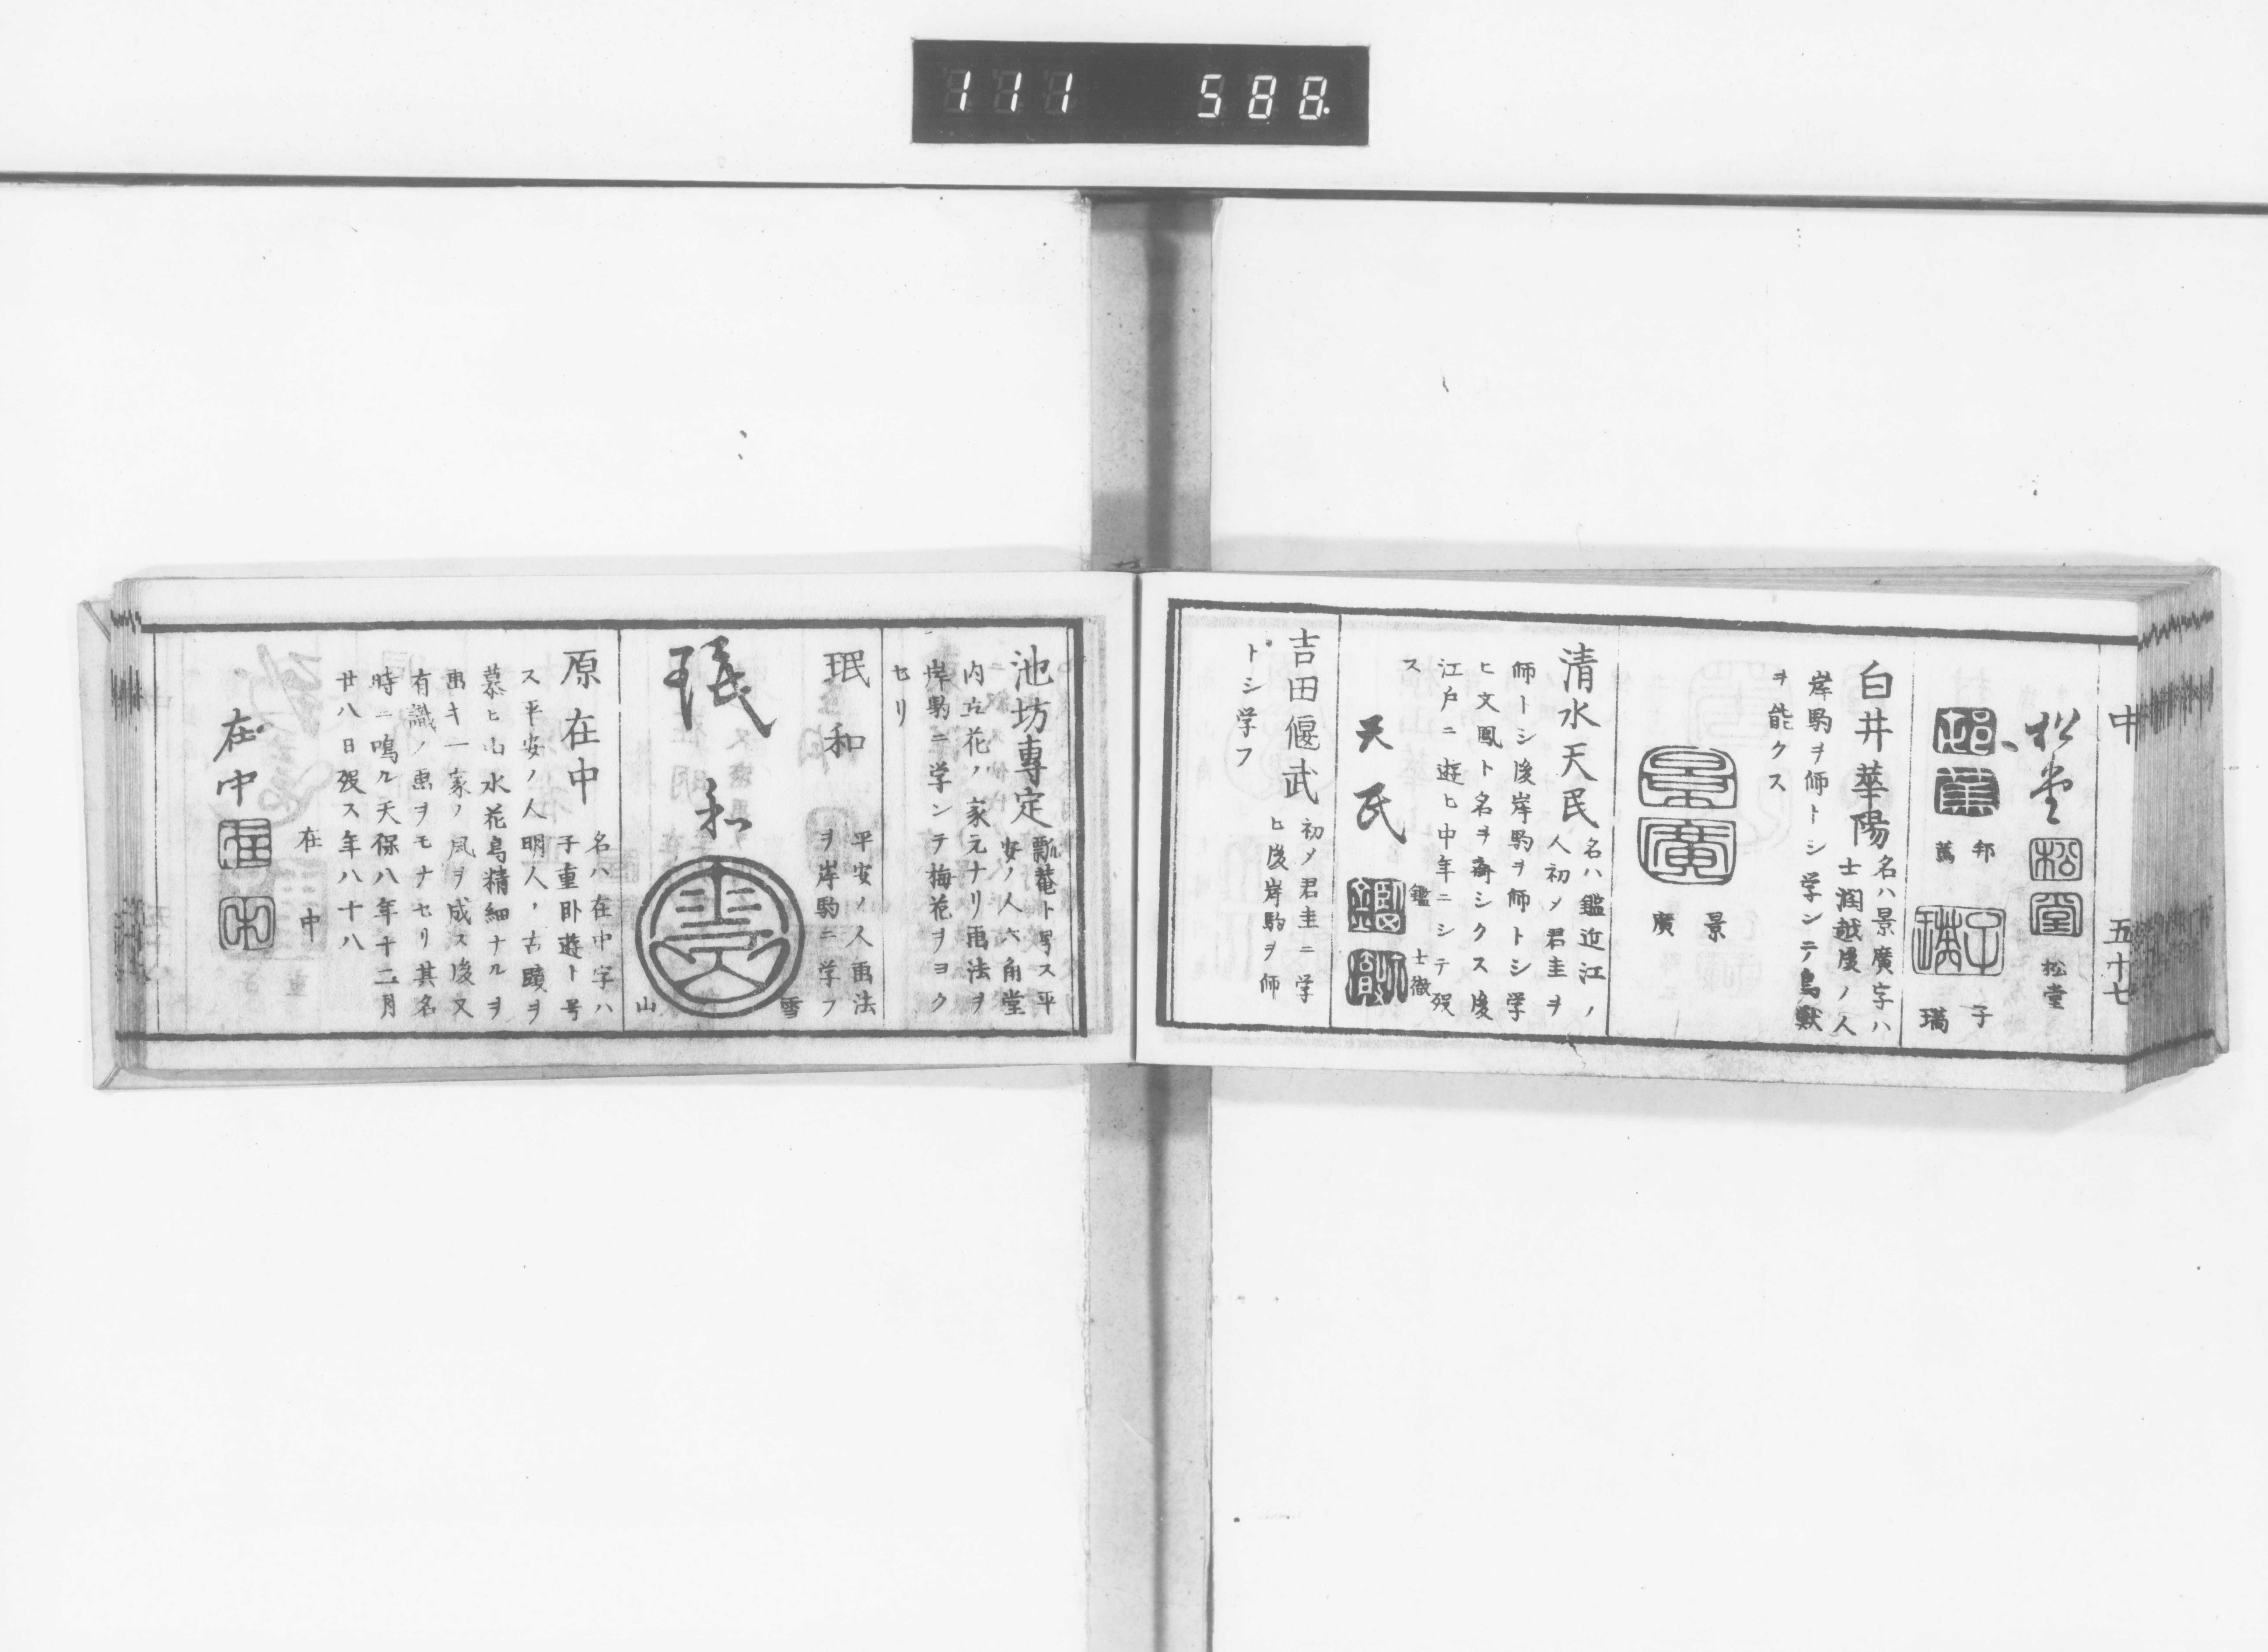 111 588
中 五十七
松堂
松堂
松堂
邦
萬
子
瑀
白井華陽
名ハ景廣字ハ
士潤越後ノ人
岸駒ヲ師トシ学ンテ鳥獣
ヲ能クス
景廣
景
廣
清水天民
名ハ鑑近江ノ
人初メ君圭ヲ
師トシ後岸駒ヲ師トシ学
ヒ文鳳ト名ヲ斉シクス後
江戸ニ遊ヒ中年ニシテ歿
ス
天民
鑑
士徹
吉田偃武
初メ君圭ニ学
ヒ後岸駒ヲ師
トシ学フ
池坊專定
瓢菴ト号ス平
安ノ人六角堂
内立花ノ家元ナリ画法ヲ
岸駒ニ学ンテ梅花ヲヨク
セリ
珉和
平安ノ人画法
ヲ岸駒ニ学フ
珉和
雪
山
原在中
名ハ在中字ハ
子重臥遊ト号
ス平安ノ人明人ノ古蹟ヲ
慕ヒ山水花鳥精細ナルヲ
画キ一家ノ風ヲ成ス後又
有識ノ画ヲモナセリ其名
時ニ鳴ル天保八年十二月
廿八日歿ス年八十八
在中
在中
在中